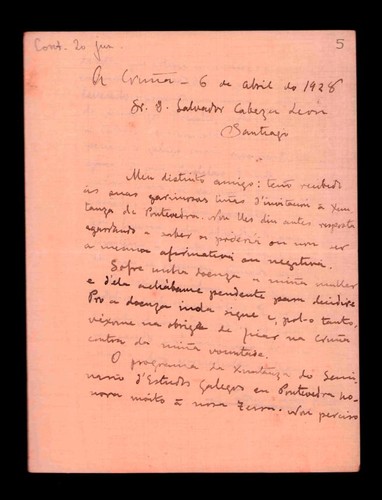 Cont. 20 jun.
5
A Cruña - 6 de abril do 1928
Sr. D. Salvador Cabeza León
Santiago
Meu distinto amigo: teño recibido
as suas garimosas d'invitación a Xun-
tanza de Pontevedra. Non lles din antes resposta
agardando a saber si podería ou non ser
a mesma afirmativa ou negativa.
Sofre unha doenza a miña muller
e d'ela achábame pendente para decidire
Pro a doenza inda sigue e, pol-o tanto,
véxome na obriga de ficar na Cruña
contra da miña vountade.
O programa da Xuntanza do Semi-
nario d'Estudos Galegos en Pontevedra ho-
nora moito á nosa Terra. Non perciso